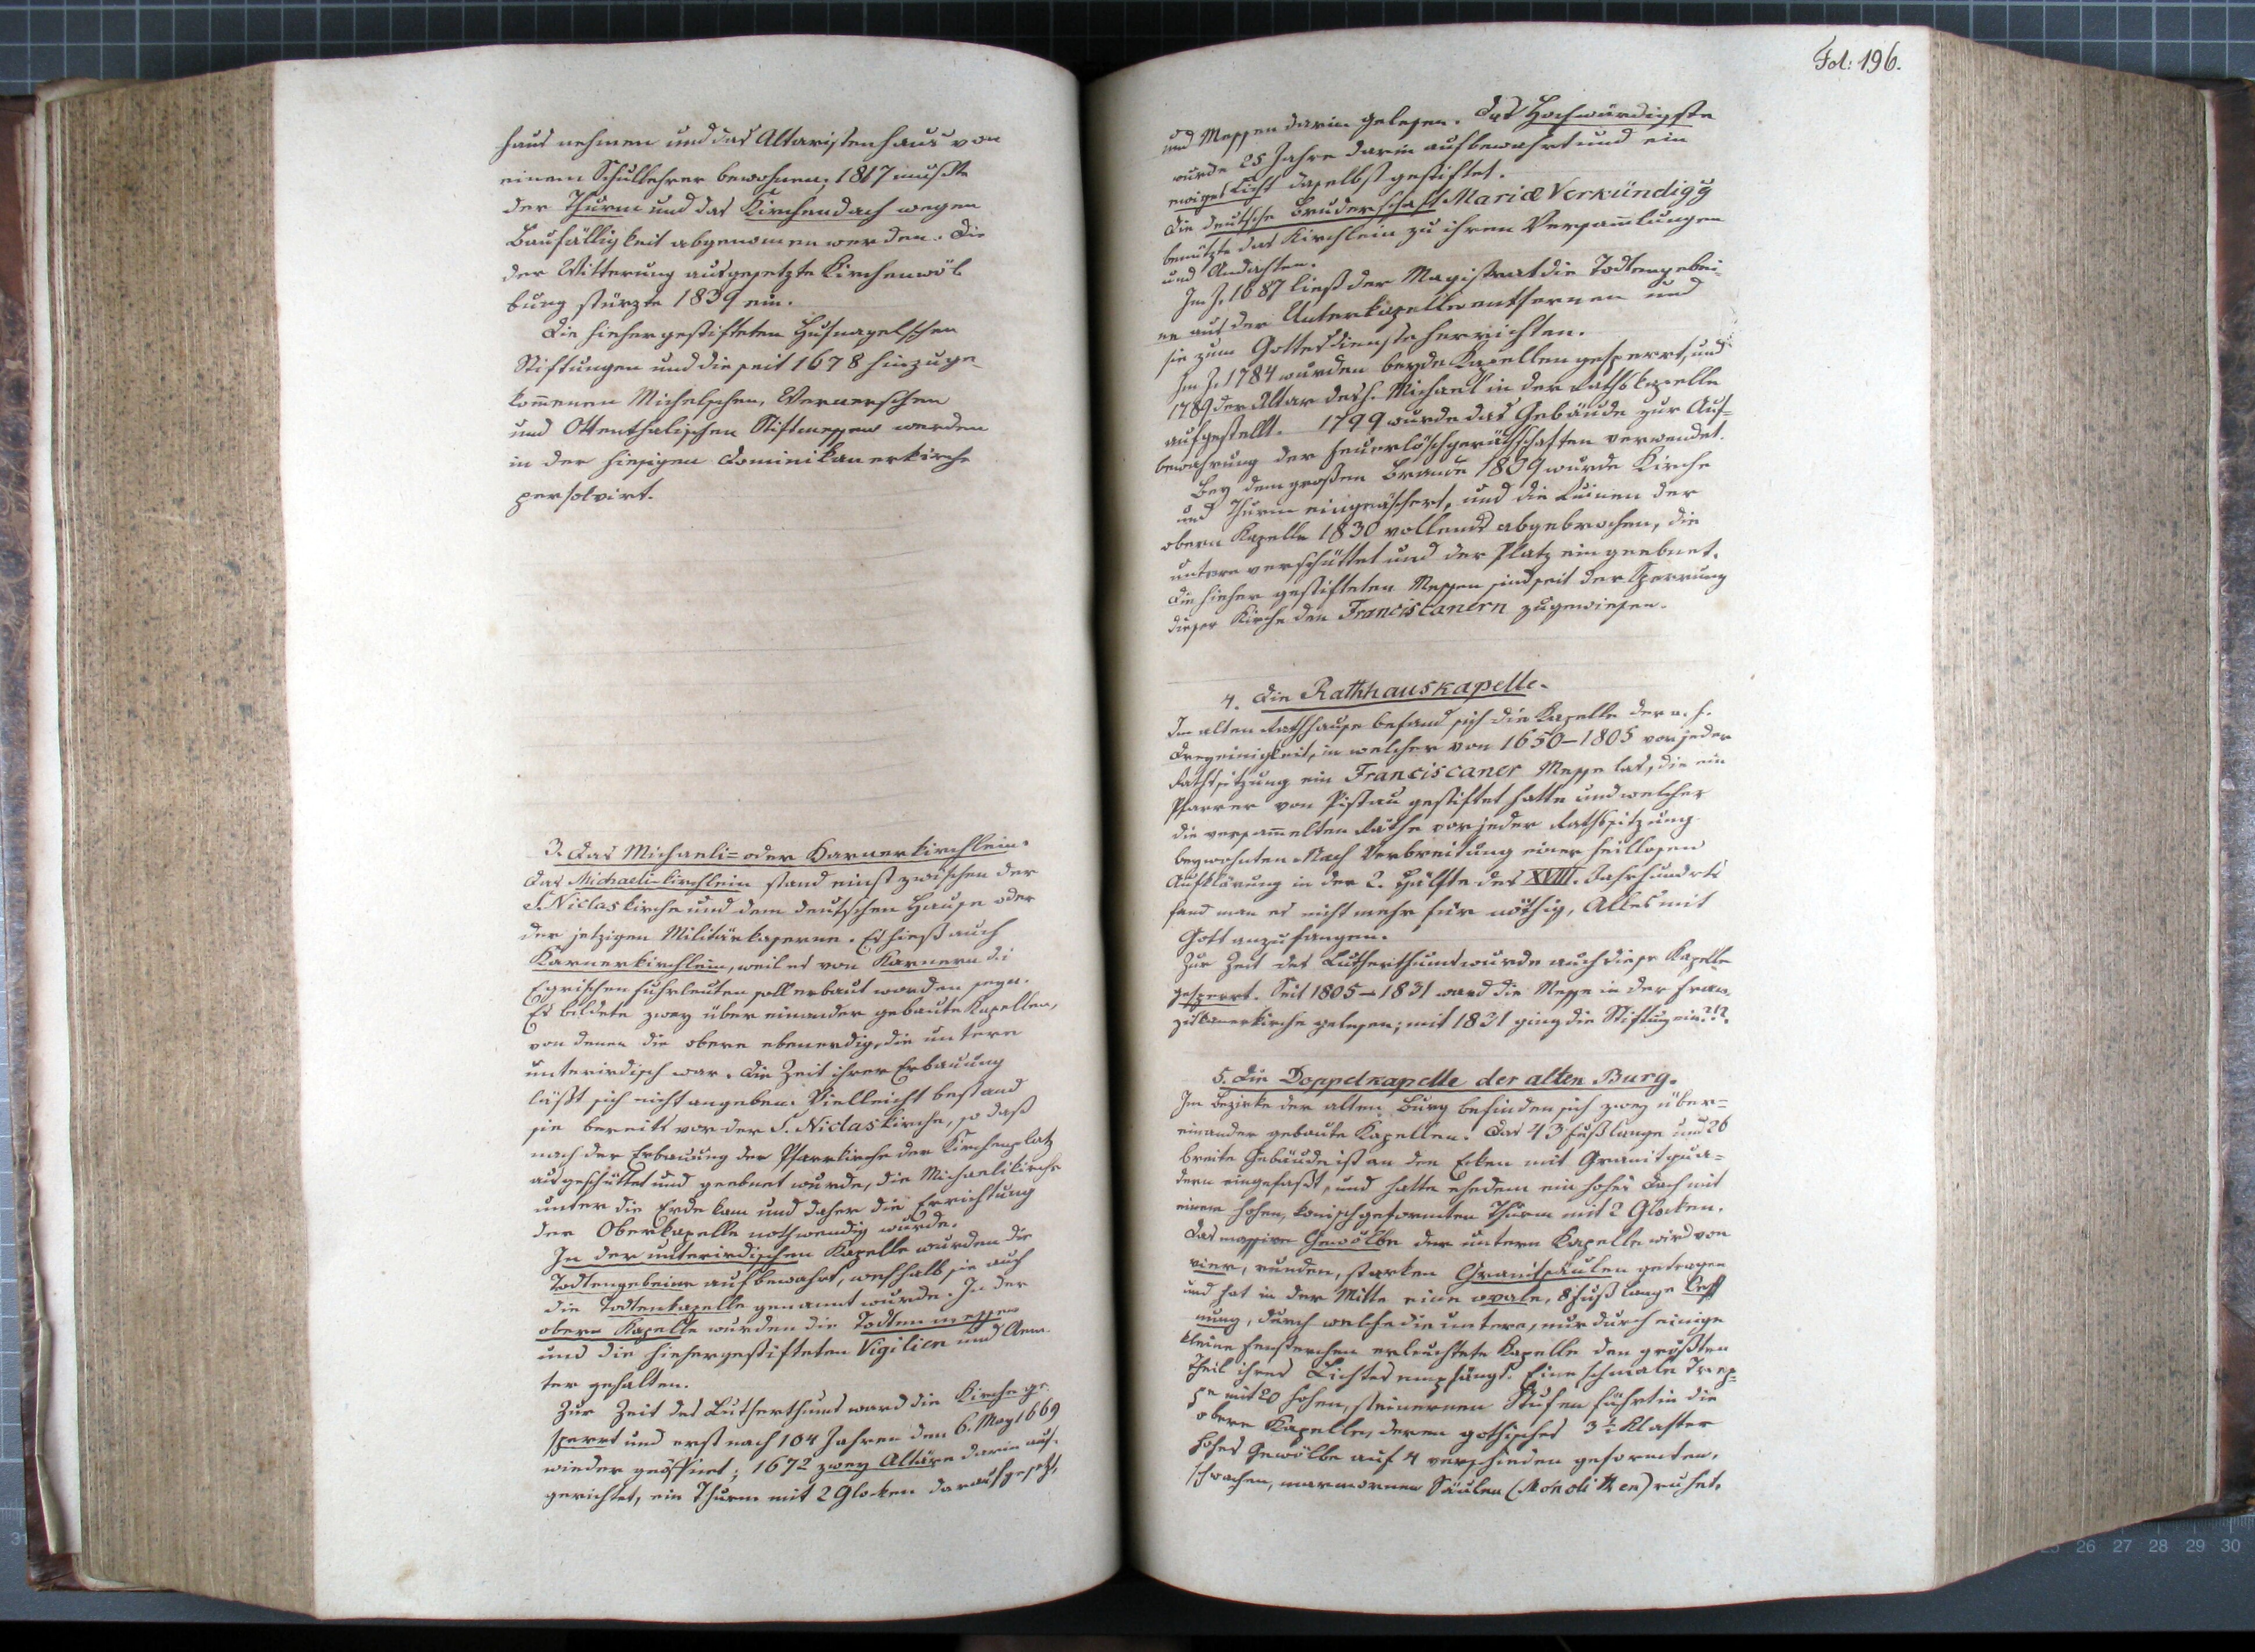 haus nehmen und das Altaristenhaus von
einem Schullehrer bewohnen; 1817 mußte
der Thurm und das Kirchendach wegen
Baufälligkeit abgenomen werden. Die
der Witterung ausgesetzte Kirchenwöl
bung stürzte 1839 ein.
Die hiehergestifteten Husnagelschen
Stiftungen und die seit 1678 hinzuge-
komenen Michelschen, Wernerschen
und Ottenthalischen Stiftmessen werden
in der hiesigen Dominikanerkirche
persolvirt.
3. Das Michaeli= oder Karnerkirchlein.
Das Michaeli-kirchlein stand einst zwischen der
S. Niclaskirche und dem deutschen Hause oder
der jetzigen Militärkaserne. Es hieß auch
Karnerkirchlein, weil es von Karnern d.i
Egrischen Fuhrleuten soll erbaut worden seyn.
Es bildete zwey über einander gebaute Kapellen,
von denen die obere ebenerdig, die untere
unterirdisch war. Die Zeit ihrer Erbauung
läßt sich nicht angeben. Vielleicht bestand
sie bereits vor der S. Niclaskirche, so daß
nach der Erbauung der Pfarrkirche der Kirchenplatz
aufgeschüttet und geebnet wurde, die Michaelikirche
unter die Erde kam und daher die Errichtung
der Oberkapelle nothwendig wurde.
In der unterirdischen Kapelle wurden die
Todtengebeine aufbewahrt, weßhalb sie auch
die Todtenkapelle genannt wurde. In der
obern Kapelle wurden die Todtenmessen
und die hiehergestifteten Vigilien und Aem-
ter gehalten.
Zur Zeit des Lutherthums ward die Kirche ge-
sperrt und erst nach 104 Jahren den 6. May 1669
wieder geöffnet; 1672 zwey Altäre darin auf-
gerichtet, ein Thurm mit 2 Glocken darauf gesetzt,
Fol: 196.
und Messen darin gelesen. Das Hochwürdigste
wurde 25 Jahre darin aufbewahrt und ein
ewiges Licht daselbst gestiftet.
Die deutsche Bruderschaft Mariæ Verkündigg
benützte das Kirchlein zu ihren Versamlungen
und Andachten.
Im J. 1687 ließ der Magistrat die Todtengebei-
ne aus der Unterkapelle entfernen und
sie zum Gottesdienste herrichten.
Im J. 1784 wurden beyde Kapellen gesperrt, und
1789 der Altar des h. Michael in der Rathskapelle
aufgestellt. 1799 wurde das Gebäude zur Auf=
bewahrung der Feuerlöschgeräthschaften verwendet.
Bey dem großen Brande 1809 wurde Kirche
und Thurm eingeäschert, und die Ruinen der
obern Kapelle 1830 vollends abgebrochen, die
untere verschüttet und der Platz eingeebnet.
Die hieher gestifteten Messen sind seit der Sperrung
dieser Kirche den Franciscanern zugewiesen.
4. Die Rathhauskapelle.
Im alten Rathhause befand sich die Kapelle der a. h.
Dreyeinigkeit, in welcher von 1650–1805 vor jeder
Rathssitzung ein Franciscaner Messe las, die ein
Pfarrer von Pistau gestiftet hatte und welcher
die versamelten Räthe vor jeder Rathssitzung
beywohnten. Nach Verbreitung einer heillosen
Aufklärung in der 2. Hälfte des XVIII. Jahrhundrts
fand man es nicht mehr für nöthig, Alles mit
Gott anzufangen.
Zur Zeit des Lutherthums wurde auch diese Kapelle
gesperrt. Seit 1805–1831 ward die Messe in der Fran-
ziskanerkirche gelesen; mit 1831 ging die Stiftung ein?!?.
5. Die Doppelkapelle der alten Burg.
Im Bezirke der alten Burg befinden sich zwey über=
einander gebaute Kapellen. Das 43 Fuß lange und 26
breite Gebäude ist an den Ecken mit Granitqua=
dern eingefaßt, und hatte ehedem ein hohes Dach mit
einem hohen, konischgeformten Thurm mit 2 Glocken.
Das massive Gewölbe der untern Kapelle wird von
vier, runden, starken Granitsäulen getragen
und hat in der Mitte eine ovale, 8 Fuß lange Oeff
nung, durch welche die untere, nur durch einige
kleine Fensterchen erleuchtete Kapelle den größten
Theil ihres Lichtes empfängt. Eine schmale Trep=
pe mit 20 hohen, steinernen Stufen führt in die
obere Kapelle, deren gothisches 3½ Klafter
hohes Gewölbe auf 4 verschieden geformten,
schwachen, marmornen Säulen (Monolithen) ruhet.